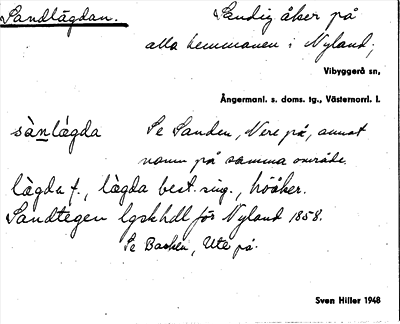 Sandlägdan.
Sandig åker på
alla hemmanen i Nyland;
Vibyggerå sn,
Ångermanl. s. doms. tg., Västernorrl. l.
sàn̲lágda
Se Sanden, Nere på, annat
namn på samma område.
làgda f., làgda best. sing., höåker.
Sandtegen lgskhdl för Nyland 1858.
Se Backen, Ute på.
Sven Hiller 1948